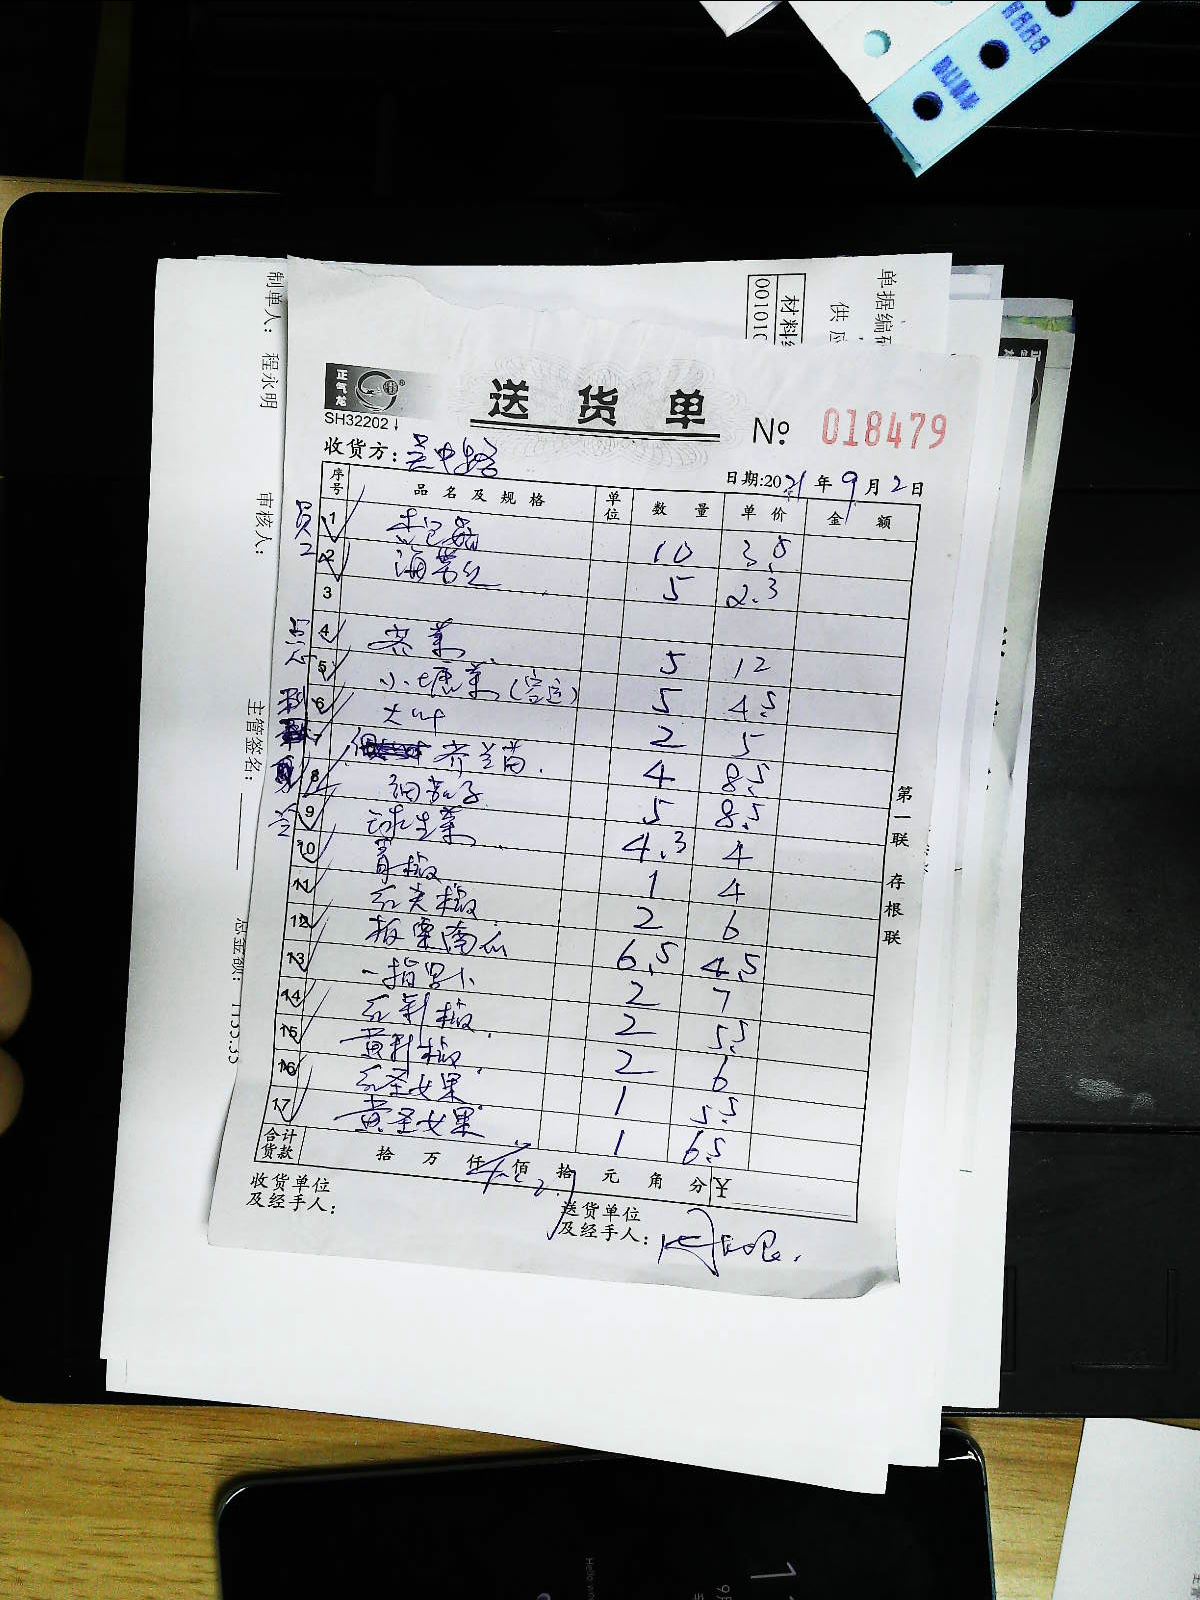 单据编码
供应
材料
001010
制单人: 程永明
审核人:
主管签名:
总金额: 1155.55
正气龙
SH32202
送货单
№: 018479
收货方: 吴中路
日期:2021年9月2日
序号 品名及规格 单位 数量 单价 金额
员工
1 杏包菇 10 3.8
2 海带丝 5 2.3
3
点心
4 荠菜 5 12
5 小塘菜 5 4.5
6 大叶 2 5
7 芥兰苗 4 8.5
8 细茄子 5 8.5
9 球生菜 4.3 4
10 青椒 1 4
11 红尖椒 2 6
12 板栗南瓜 6.5 4.5
13 一指 2 7
14 红彩椒 2 5.5
15 黄彩椒 2 6
16 红圣女果 1 5.5
17 黄圣女果 1 6.5
合计货款 拾 万 仟 佰 拾 元 角 分 ¥
收货单位及经手人:
送货单位及经手人:
第一联 存根联